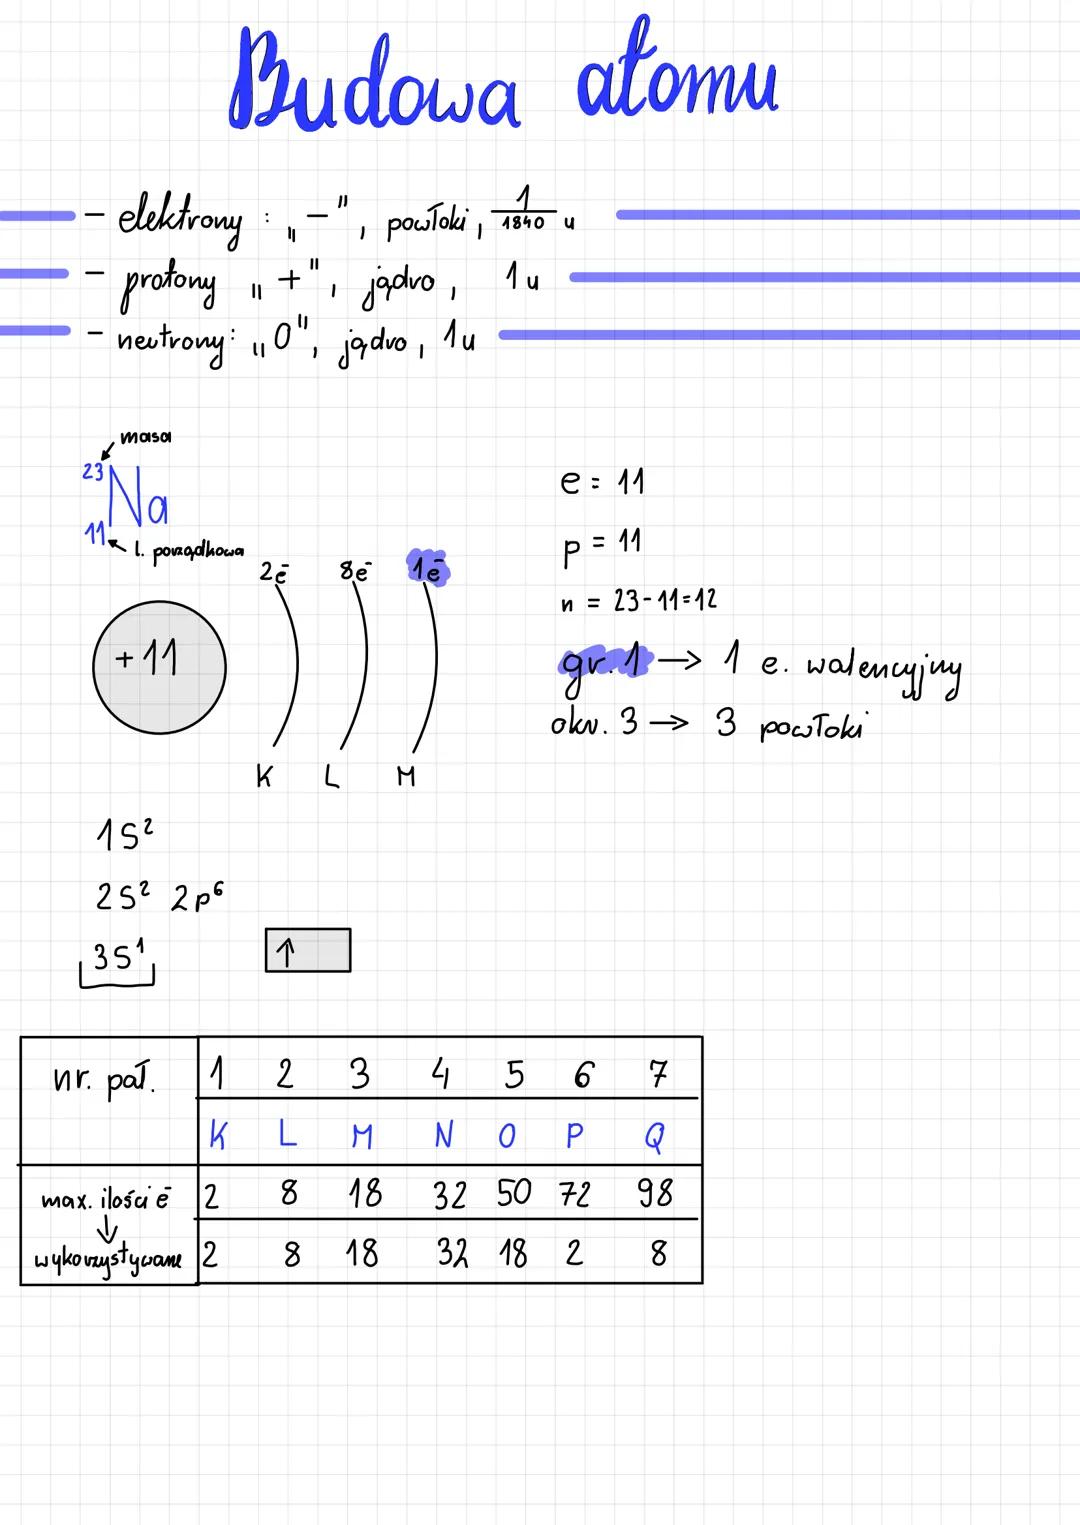 Budowa atomu
- elektrony : „-", powłoki, 1/1840 u
- protony „+", jądro, 1u
- neutrony: „0", jądro, 1u
masa
23
Na
11
l. porządkowa
e = 11
p = 11
n = 23-11=12
gr. 1 → 1 e. walencyjny
okr. 3 → 3 powłoki
2e̅ 8e̅ 1e̅
+11
K L M
1s²
2s² 2p⁶
3s¹ ↑
nr. pał. 1 2 3 4 5 6 7
K L M N O P Q
max. ilości e̅ 2 8 18 32 50 72 98
↓
wykorzystywane 2 8 18 32 18 2 8